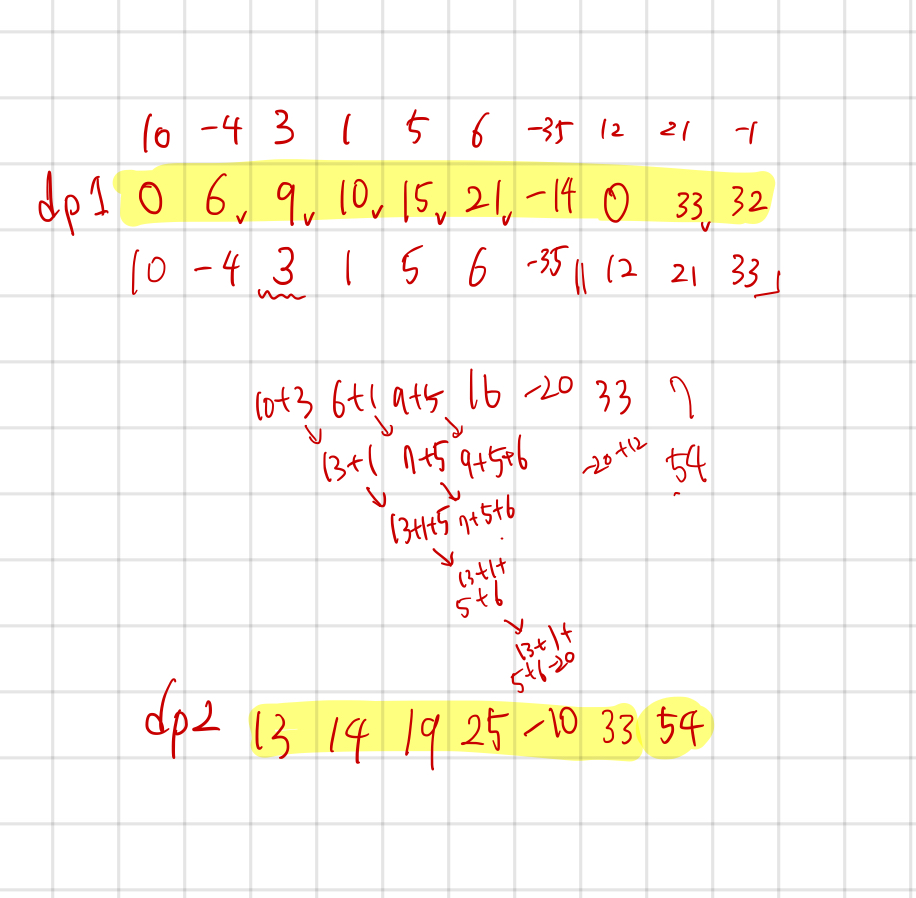 10 -4 3 1 5 6 -35 12 21 -1
dp1 0 6 9 10 15 21 -14 0 33 32
10 -4 3 1 5 6 -35 || 12 21 33
10+3 6+1 9+5 16 -20 33 7
13+1 7+5 9+5+6 -20+12 54
13+1+5 7+5+6
13+1+
5+6
13+1+
5+6-20
dp2 13 14 19 25 -10 33 54